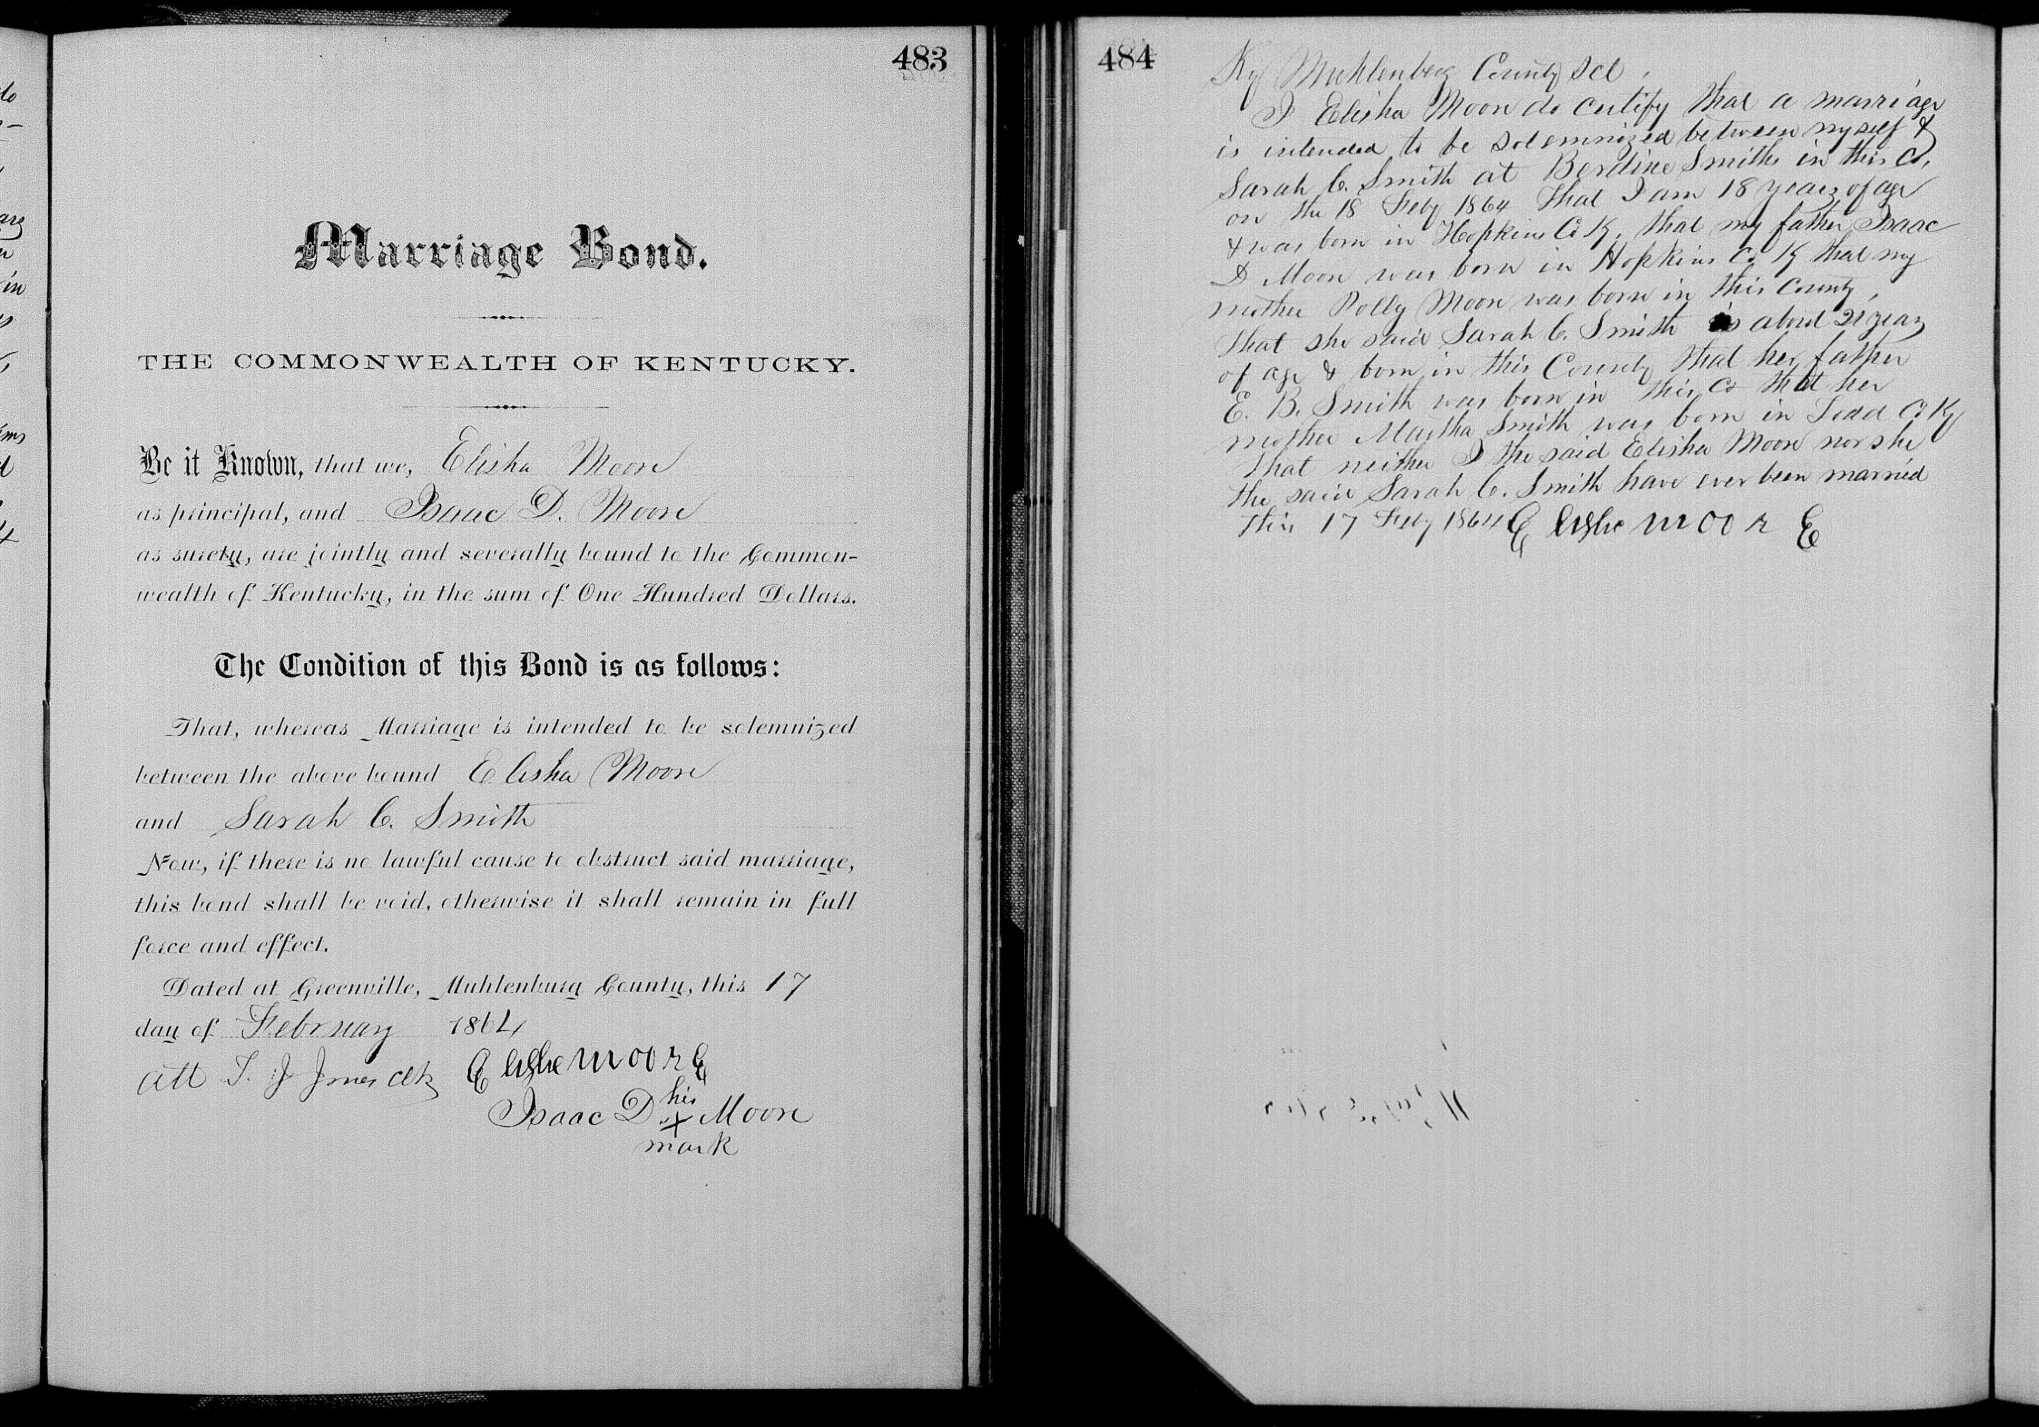 483
Marriage Bond.
THE COMMONWEALTH OF KENTUCKY.
Be it Known, that we, Elisha Moore
as principal, and Isaac D. Moore
as surety, are jointly and severally bound to the Common-
wealth of Kentucky, in the sum of One Hundred Dollars.
The Condition of this Bond is as follows:
That, whereas Marriage is intended to be solemnized
between the above bound Elisha Moore
and Sarah C. Smith
Now, if there is no lawful cause to obstruct said marriage,
this bond shall be void, otherwise it shall remain in full
force and effect.
Dated at Greenville, Muhlenburg County, this 17
day of February 1864
att T. J. Jones clk Elishe moore
his
Isaac D. X Moore
mark
484
Ky Muhlenberg County Sct.
I Elisha Moore do certify that a marriage
is intended to be solemnized between myself &
Sarah C. Smith at Berdine Smiths in this Co,
on the 18 Feby 1864 that I am 18 years of age
& was born in Hopkins Co Ky, that my father Isaac
D Moore was born in Hopkins Co Ky that my
mother Polly Moore was born in this County,
that she said Sarah C. Smith is about 21 years
of age & born in this County that her father
E. B. Smith was born in this Co that her
mother Martha Smith was born in Todd Co Ky
that neither I the said Elisha Moore nor she
the said Sarah C. Smith have ever been married
this 17 Feby 1864 Elishe moore